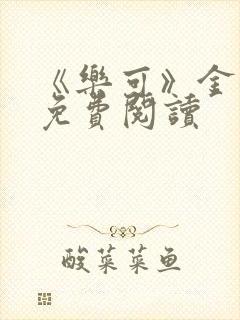 《樂可》金
免費閱讀
酸菜菜鱼